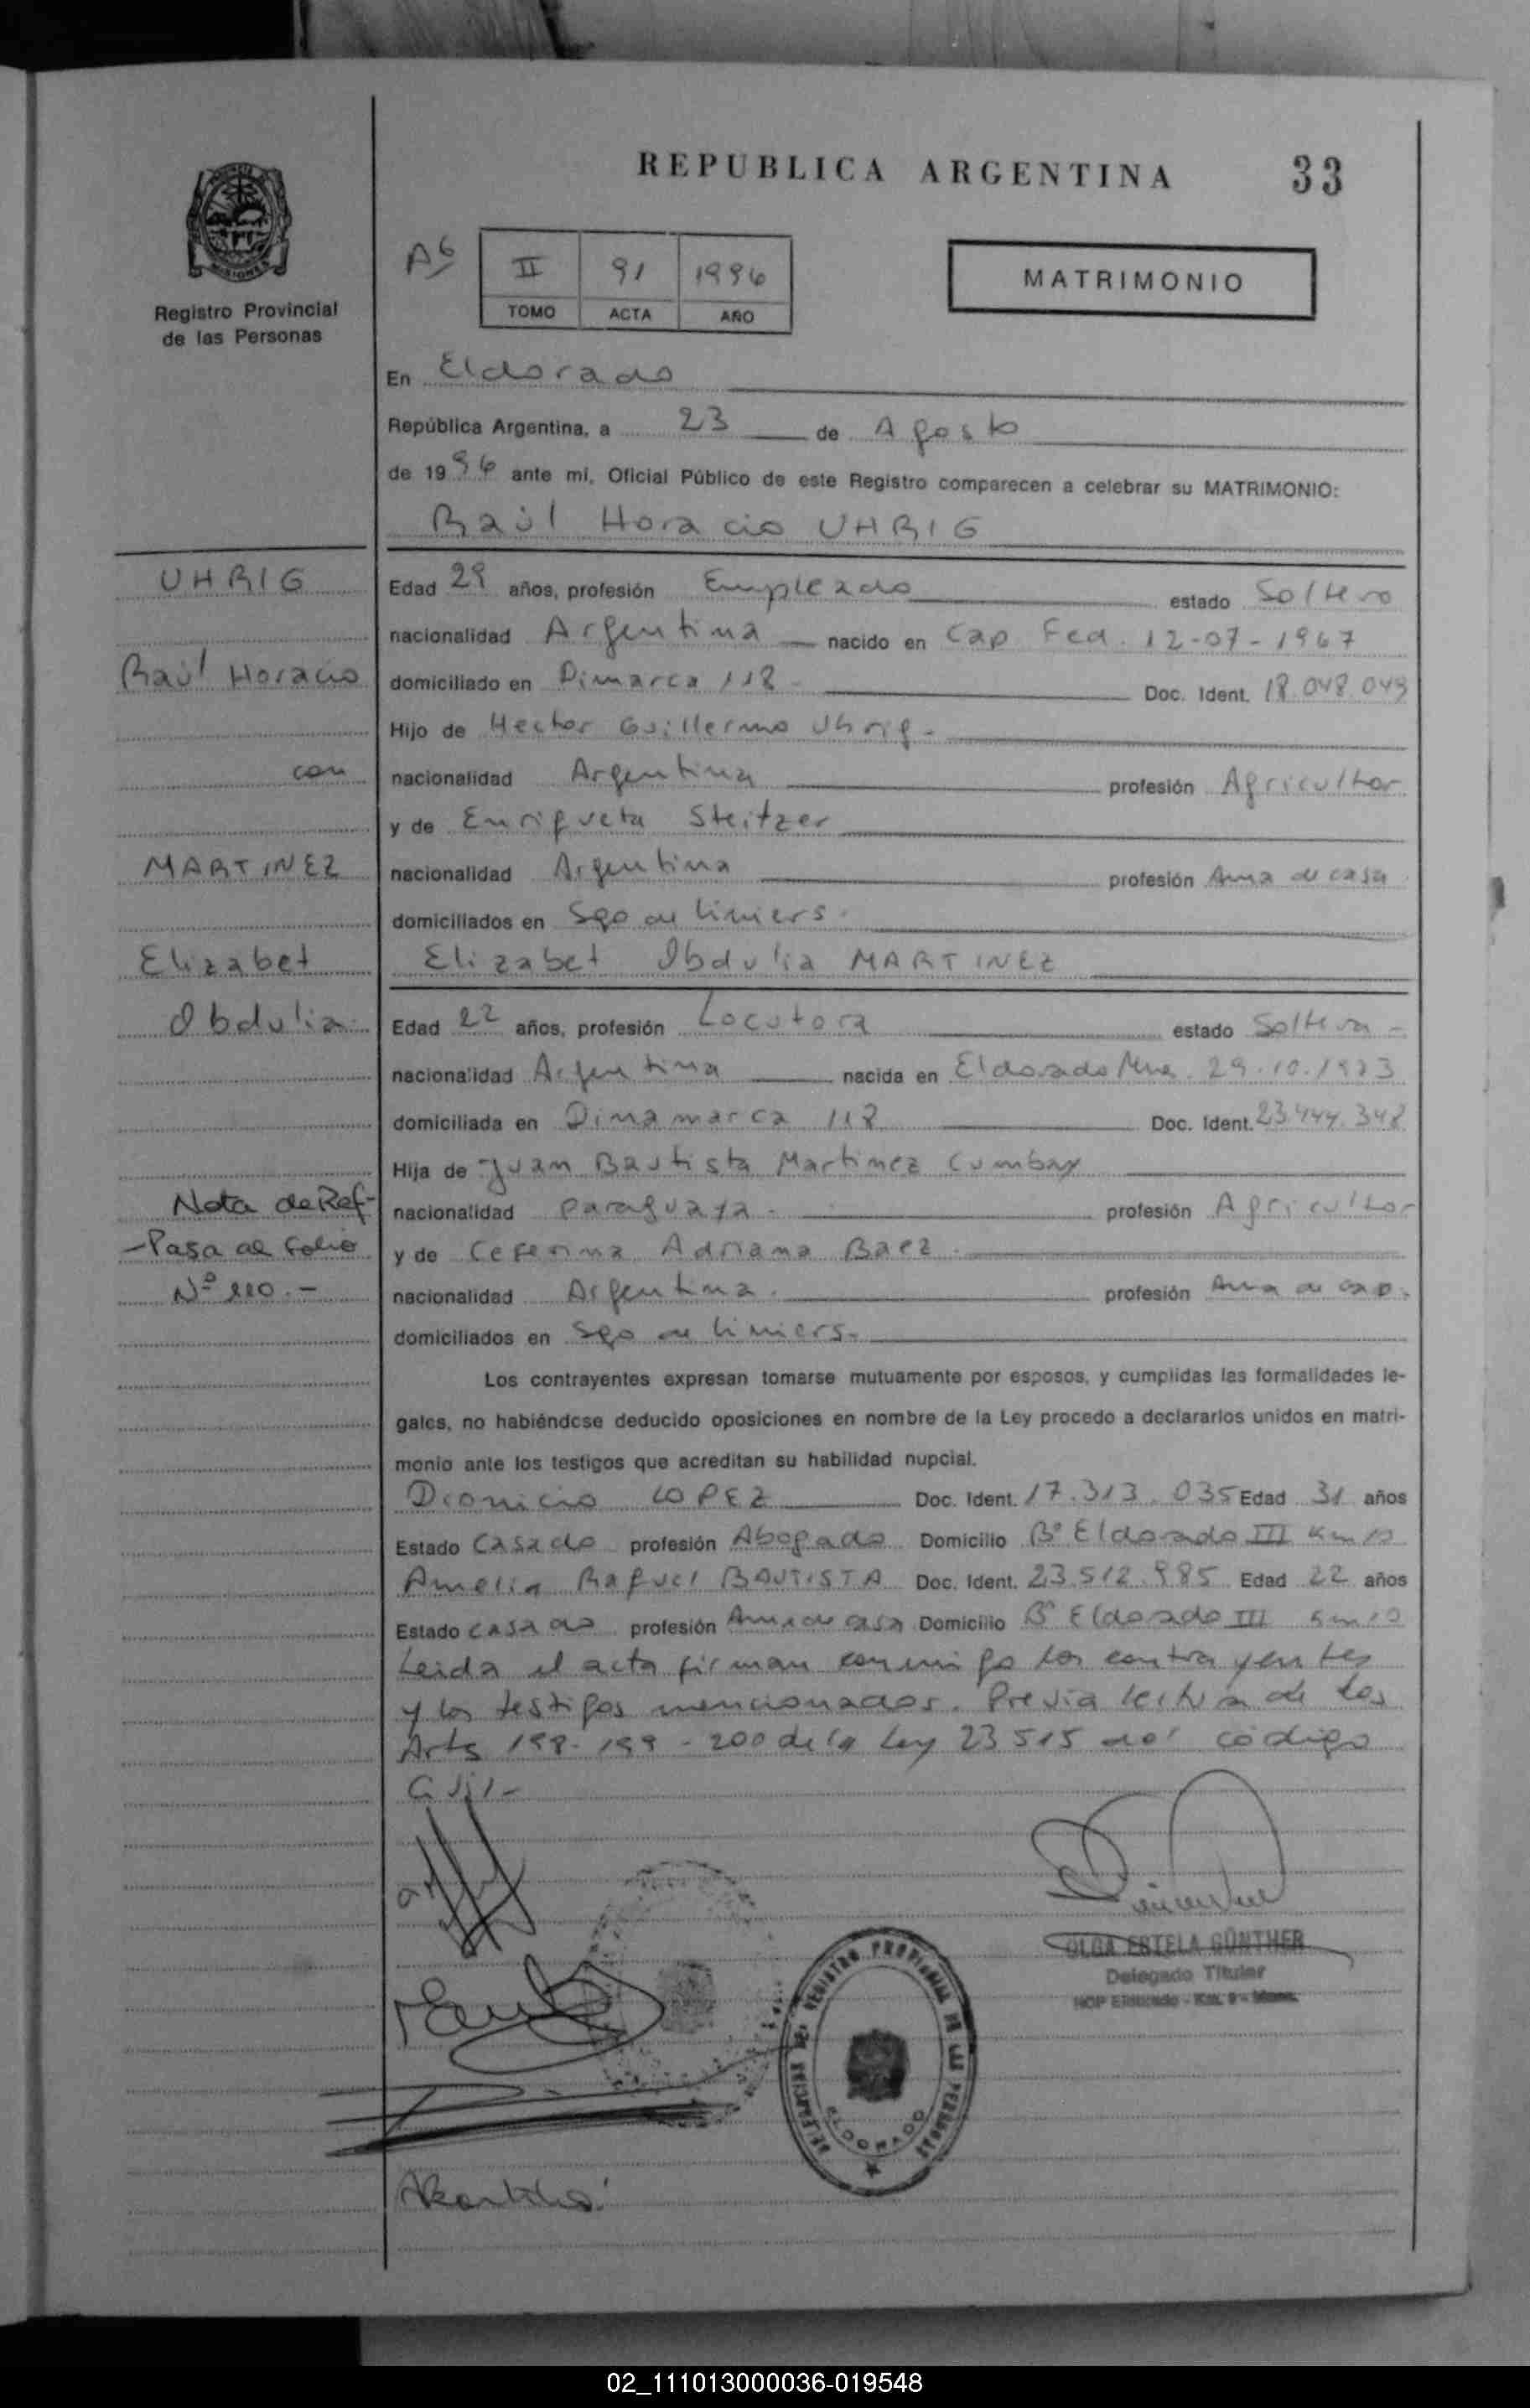 REPUBLICA ARGENTINA
33
MISIONES
Registro Provincial
de las Personas
A6
II 91 1996
TOMO ACTA AÑO
MATRIMONIO
En Eldorado
República Argentina, a 23 de Agosto
de 1996 ante mi, Oficial Público de este Registro comparecen a celebrar su MATRIMONIO:
Raúl Horacio UHRIG
UHRIG
Edad 29 años, profesión Empleado estado Soltero
nacionalidad Argentina nacido en Cap Fed. 12-07-1967
Raúl Horacio
domiciliado en Dimarca 118 - Doc. Ident. 18.048.049
Hijo de Hector Guillermo Uhrig -
con
nacionalidad Argentina profesión Agricultor
y de Enriqueta Steitzer
MARTINEZ
nacionalidad Argentina profesión Ama de casa
domiciliados en Sgo de Liniers.
Elizabet
Elizabet Obdulia MARTINEZ
Obdulia
Edad 22 años, profesión Locutora estado Soltera -
nacionalidad Argentina nacida en Eldorado Mnes. 29.10.1973
domiciliada en Dinamarca 118 Doc. Ident. 23.444.348
Hija de Juan Bautista Martinez Cumbay
Nota de Ref-
nacionalidad Paraguaya. profesión Agricultor
-Pasa al folio
y de Ceferina Adriana Baez.
Nº 210.-
nacionalidad Argentina. profesión Ama de casa.
domiciliados en Sgo de Liniers.
Los contrayentes expresan tomarse mutuamente por esposos, y cumplidas las formalidades le-
gales, no habiéndose deducido oposiciones en nombre de la Ley procedo a declararlos unidos en matri-
monio ante los testigos que acreditan su habilidad nupcial.
Dionicio LOPEZ Doc. Ident. 17.313.035 Edad 31 años
Estado Casado profesión Abogado Domicilio Bº Eldorado III Km 10
Amelia Raquel BAUTISTA Doc. Ident. 23.512.985 Edad 22 años
Estado casada profesión Ama de casa Domicilio Bº Eldorado III Km 10
Leida el acta firman conmigo los contrayentes
y los testigos mencionados. Previa lectura de los
Arts 198-199-200 de la Ley 23515 del código
Civil-
OLGA ESTELA GÜNTHER
Delegado Titular
DELEGACION DEL REGISTRO PROVINCIAL DE LAS PERSONAS
ELDORADO
02_111013000036-019548